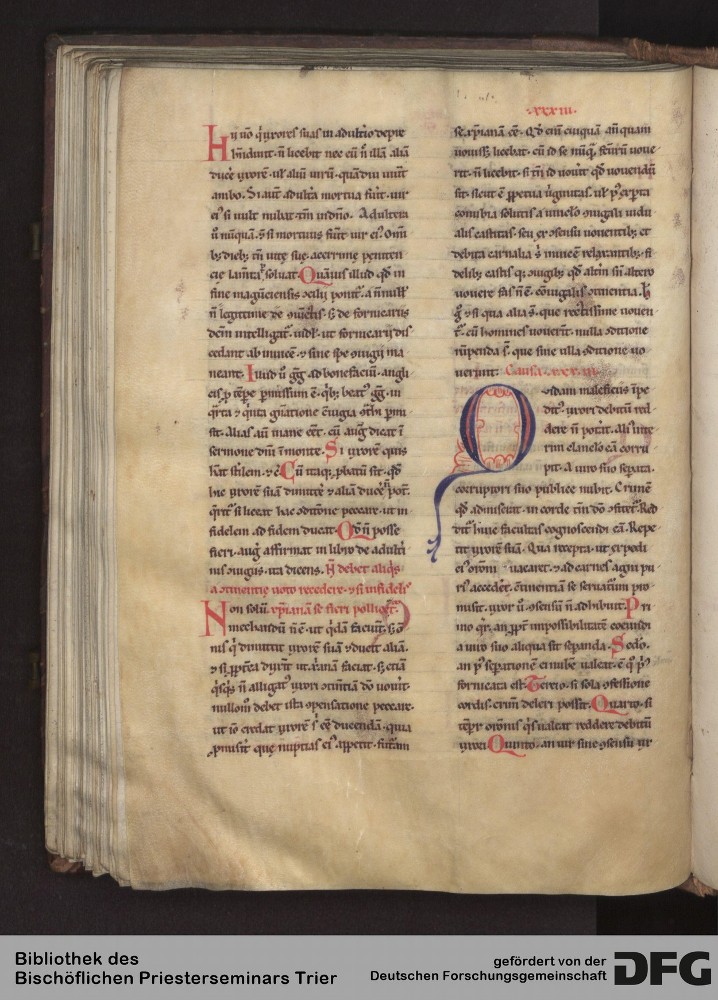 .xxxiii.
Hii ũo q̇ uxores suas in adulťio depre
hendunt. ñ licebit nec eũ ñ illã aliã
ducẻ uxorẽ. ul̓ aliũ uirũ. quãdiu uiuũt
ambo. Si aut̃ adult̃a mortua fuit. uir
ei᷒ si uult nubat. tm̃ in dño. Adultera
ũ nũquã. ⁊ si mortuus fuit uir ei᷒. Om̃i
b; dieb; uitę suę. acerrimę peniten
cię lam̃ta soluat. Quãuis illud qd̃ in
fine
ñ legittime s; de fornicariis
dcm̃ intelligat᷑. ut fornicarij dis
cedant ab inuicẽ. ⁊ sine spe ꝯiugij ma
neant. Illud ũ gg̃ ad bonefaciũ. angli
cis ꝑ tẽpẻ ꝑmissum ẽ. qb; beat᷒ gg̃. in
q̇rta ⁊ q̇nta gñatione ꝯiugia ꝯt̃hi ꝑmi
sit. Alias. aũg dicat ĩ
sermone dñi ĩ monte. Si uxorẽ quis
h̃at sťilem. Cũ itaq; ꝓbatũ sit. qd̃
hic uxorẽ suã dimittẻ ⁊ aliã ducẻ ñ pot̃.
q̇rit᷑ si liceat hac ꝯditiõne peccare. ut in
fidelem ad fidem ducat. Qd̃ ñ posse
fieri. aug̃ affirmat in libro de adulťi
nis ꝯiugiis. ita dicens. Ñ debet aliq̇s
a ꝯtinentię uoto recedere. ⁊ si infidelis
Non solũ xp̃ianã se fieri polliceat᷑.
mechandũ ñ ẽ. ut q̇dã faciũt. s; õ
nis q̇ dimittit uxorẽ suã ⁊ ducit aliã.
⁊ si ꝓpt̃ea duxit ut xp̃ianã faciat. s; etiã
q̇sq̇s ñ alligat᷒ uxori ꝯtinẽtiã dõ uouit.
nullom̊ debet ista ꝯpensatione peccare.
ut iõ credat uxorẽ s᷒ eẽ ducendã. quia
ꝓmisit quę nuptias ei᷒ appetit. futurã
se xp̃ianã eẽ. Qd̃ eni᷒ cuiquã añquam
uouiss; licebat. cũ id se nũq̃. fct̃urũ uoue
rit. ñ licebit. si tm̃ id uouit qd̃ uouendũ
fit. sicut ẽ ꝑpetua ũginitas. ul̓ p᷒ exꝑta
conubia solutis a uinclo ꝯiugali uidu
alis castitas. seu ex ꝯsensu uouentib; et
debita carnalia s᷒ inuicẽ relaxantib;. fi
delib; castis q; ꝯiugib; qd̃ alt̃m siñ alťo
uouere fas ñ ẽ. ꝯiugalis ꝯtinentia. H
g̊ ⁊ si qua alia s̃. que rectissime uouen
t᷑. cũ homines uouerint. nulla ꝯditione
rũpenda s̃. que sine ulla ꝯditione uo
uerunt. Causa. xxx.iii.
Quidam maleficus ĩpe
dit᷒. uxori debitũ red
dere ñ poťat. Ali᷒ inte
rim clanclo eã corru
pit. A uiro suo seꝑata.
corruptori suo publice nubit. Crimẽ
qd̃ admiserat. in corde tm̃ dõ ꝯfitet᷑. Red
dit᷑ huic facultas cognoscendi eã. Repe
tit uxorẽ suã. Qua recepta. ut expedi
ci᷒ orõni uacaret. ⁊ ad carnes agni pu
ri᷒ accedẻt. ꝯtinentiã se seruaturũ pro
misit. uxor ũ ꝯsensũ ñ adhibuit. Pri
mo q̇r̃. an ꝓpt̃ impossibilitatẽ coeundi
a uiro suo aliqua sit seꝑanda. Sc̃do.
an p᷒ seꝑationẽ ei nubẽ ualeat. cũ q̊ p᷒
fornicata est. Tercio. si sola ꝯfessione
cordis. crim̃ deleri possit. Quarto. si
tẽpr̃ orõnis q̇s ualeat reddere debitũ
uxori. Quinto. an uir sine ꝯsensu ux
Bibliothek des
Bischöflichen Priesterseminars Trier
gefördert von der
Deutschen Forschungsgemeinschaft
DFG